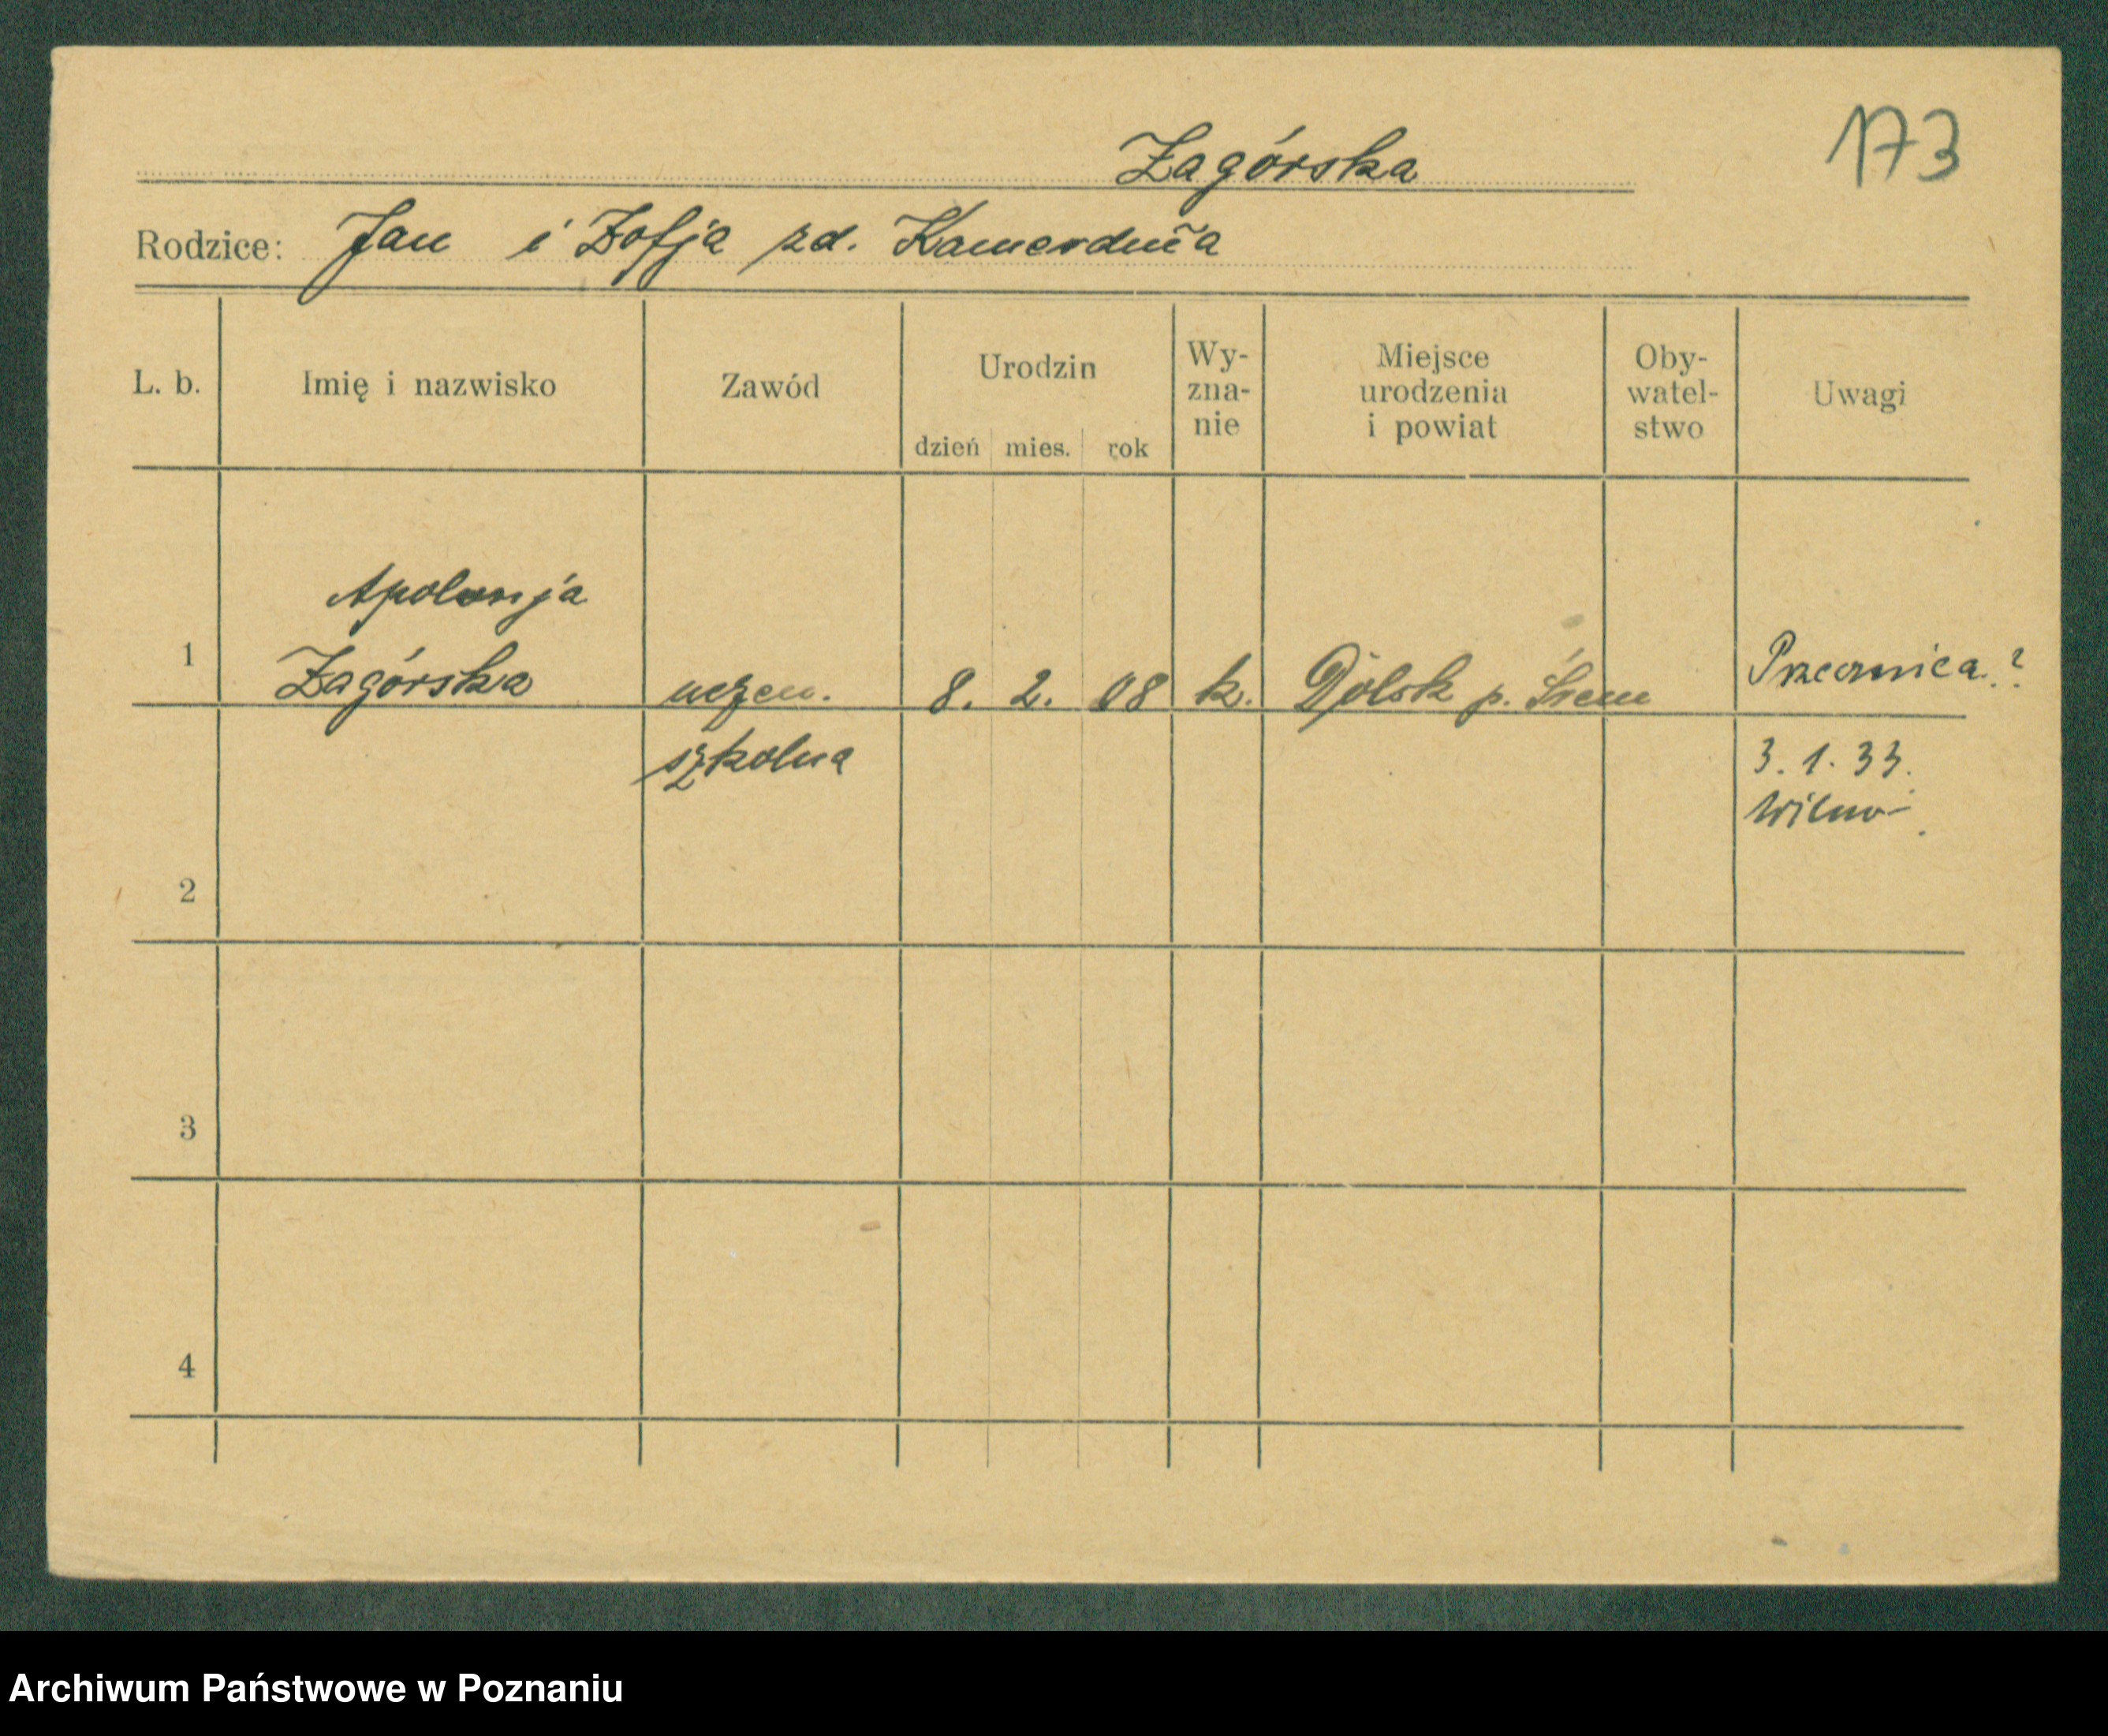 173
Zagórska
Rodzice: Jan i Zofja zd.
L. b. Imię i nazwisko Zawód Urodzin dzień mies. rok Wy-zna-nie Miejsce urodzenia i powiat Oby-watel-stwo Uwagi
Apolonja
1 Zagórska uczen. 8. 2. 08 k. Dolsk p. Śrem
szkolna 3. 1. 33.
Wilno
2
3
4
Archiwum Państwowe w Poznaniu